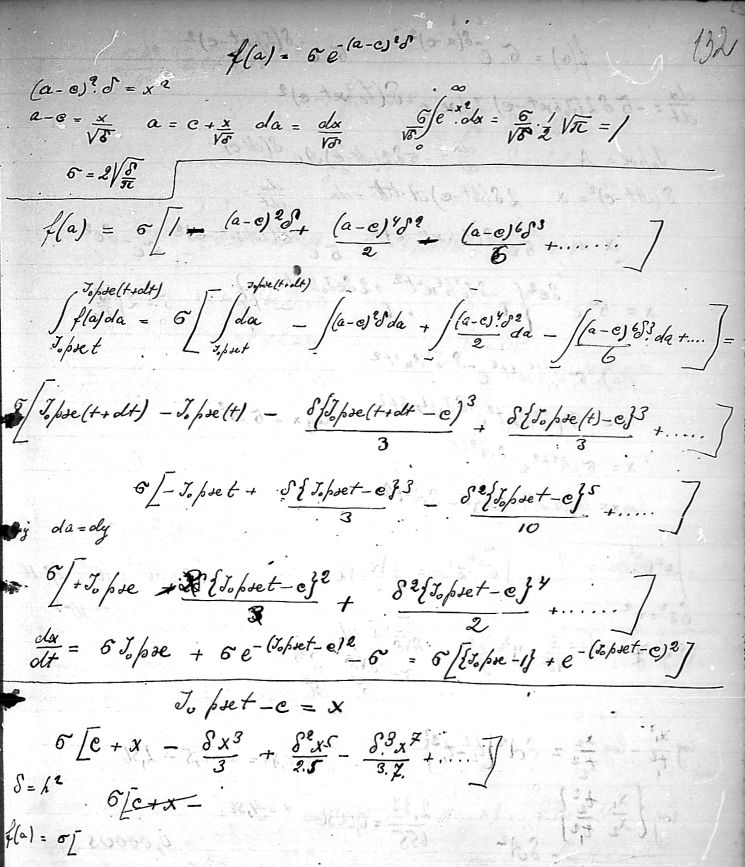 132
f(a) = σ e^{-(a-c)²δ}
(a-c)².δ = x²
a-c = x/√δ   a = c + x/√δ   da = dx/√δ   σ/√δ ∫₀^∞ e^{-x²}.dx = σ/√δ · 1/2 √π = 1
σ = 2√(δ/π)
f(a) = σ [ 1 - (a-c)²δ + (a-c)⁴δ²/2 - (a-c)⁶δ³/6 + ....... ]
∫_{J₀pset}^{J₀pse(t+dt)} f(a)da = σ [ ∫_{J₀pset}^{J₀pse(t+dt)} da - ∫(a-c)²δda + ∫ (a-c)⁴.δ²/2 da - ∫ (a-c)⁶δ³/6 .da + .... ] =
σ [ J₀pse(t+dt) - J₀pse(t) - δ{J₀pse(t+dt - c)³/3 + δ{J₀pse(t)-c}³/3 + ..... ]
σ [ -J₀pset + δ{J₀pset-c}³/3 - δ²{J₀pset-c}⁵/10 + ..... ]
da = dy
σ [ +J₀pse + δ{J₀pset-c}² + δ²{J₀pset-c}⁴/2 + ....... ]
dx/dt = σJ₀pse + σe^{-(J₀pset-c)²} - σ = σ[{J₀pse-1} + e^{-(J₀pset-c)²}]
J₀pset - c = x
σ [ c + x - δx³/3 + δ²x⁵/2.5 - δ³x⁷/3.7. + ..... ]
δ = h²
σ[c+x -
f(a) = σ[